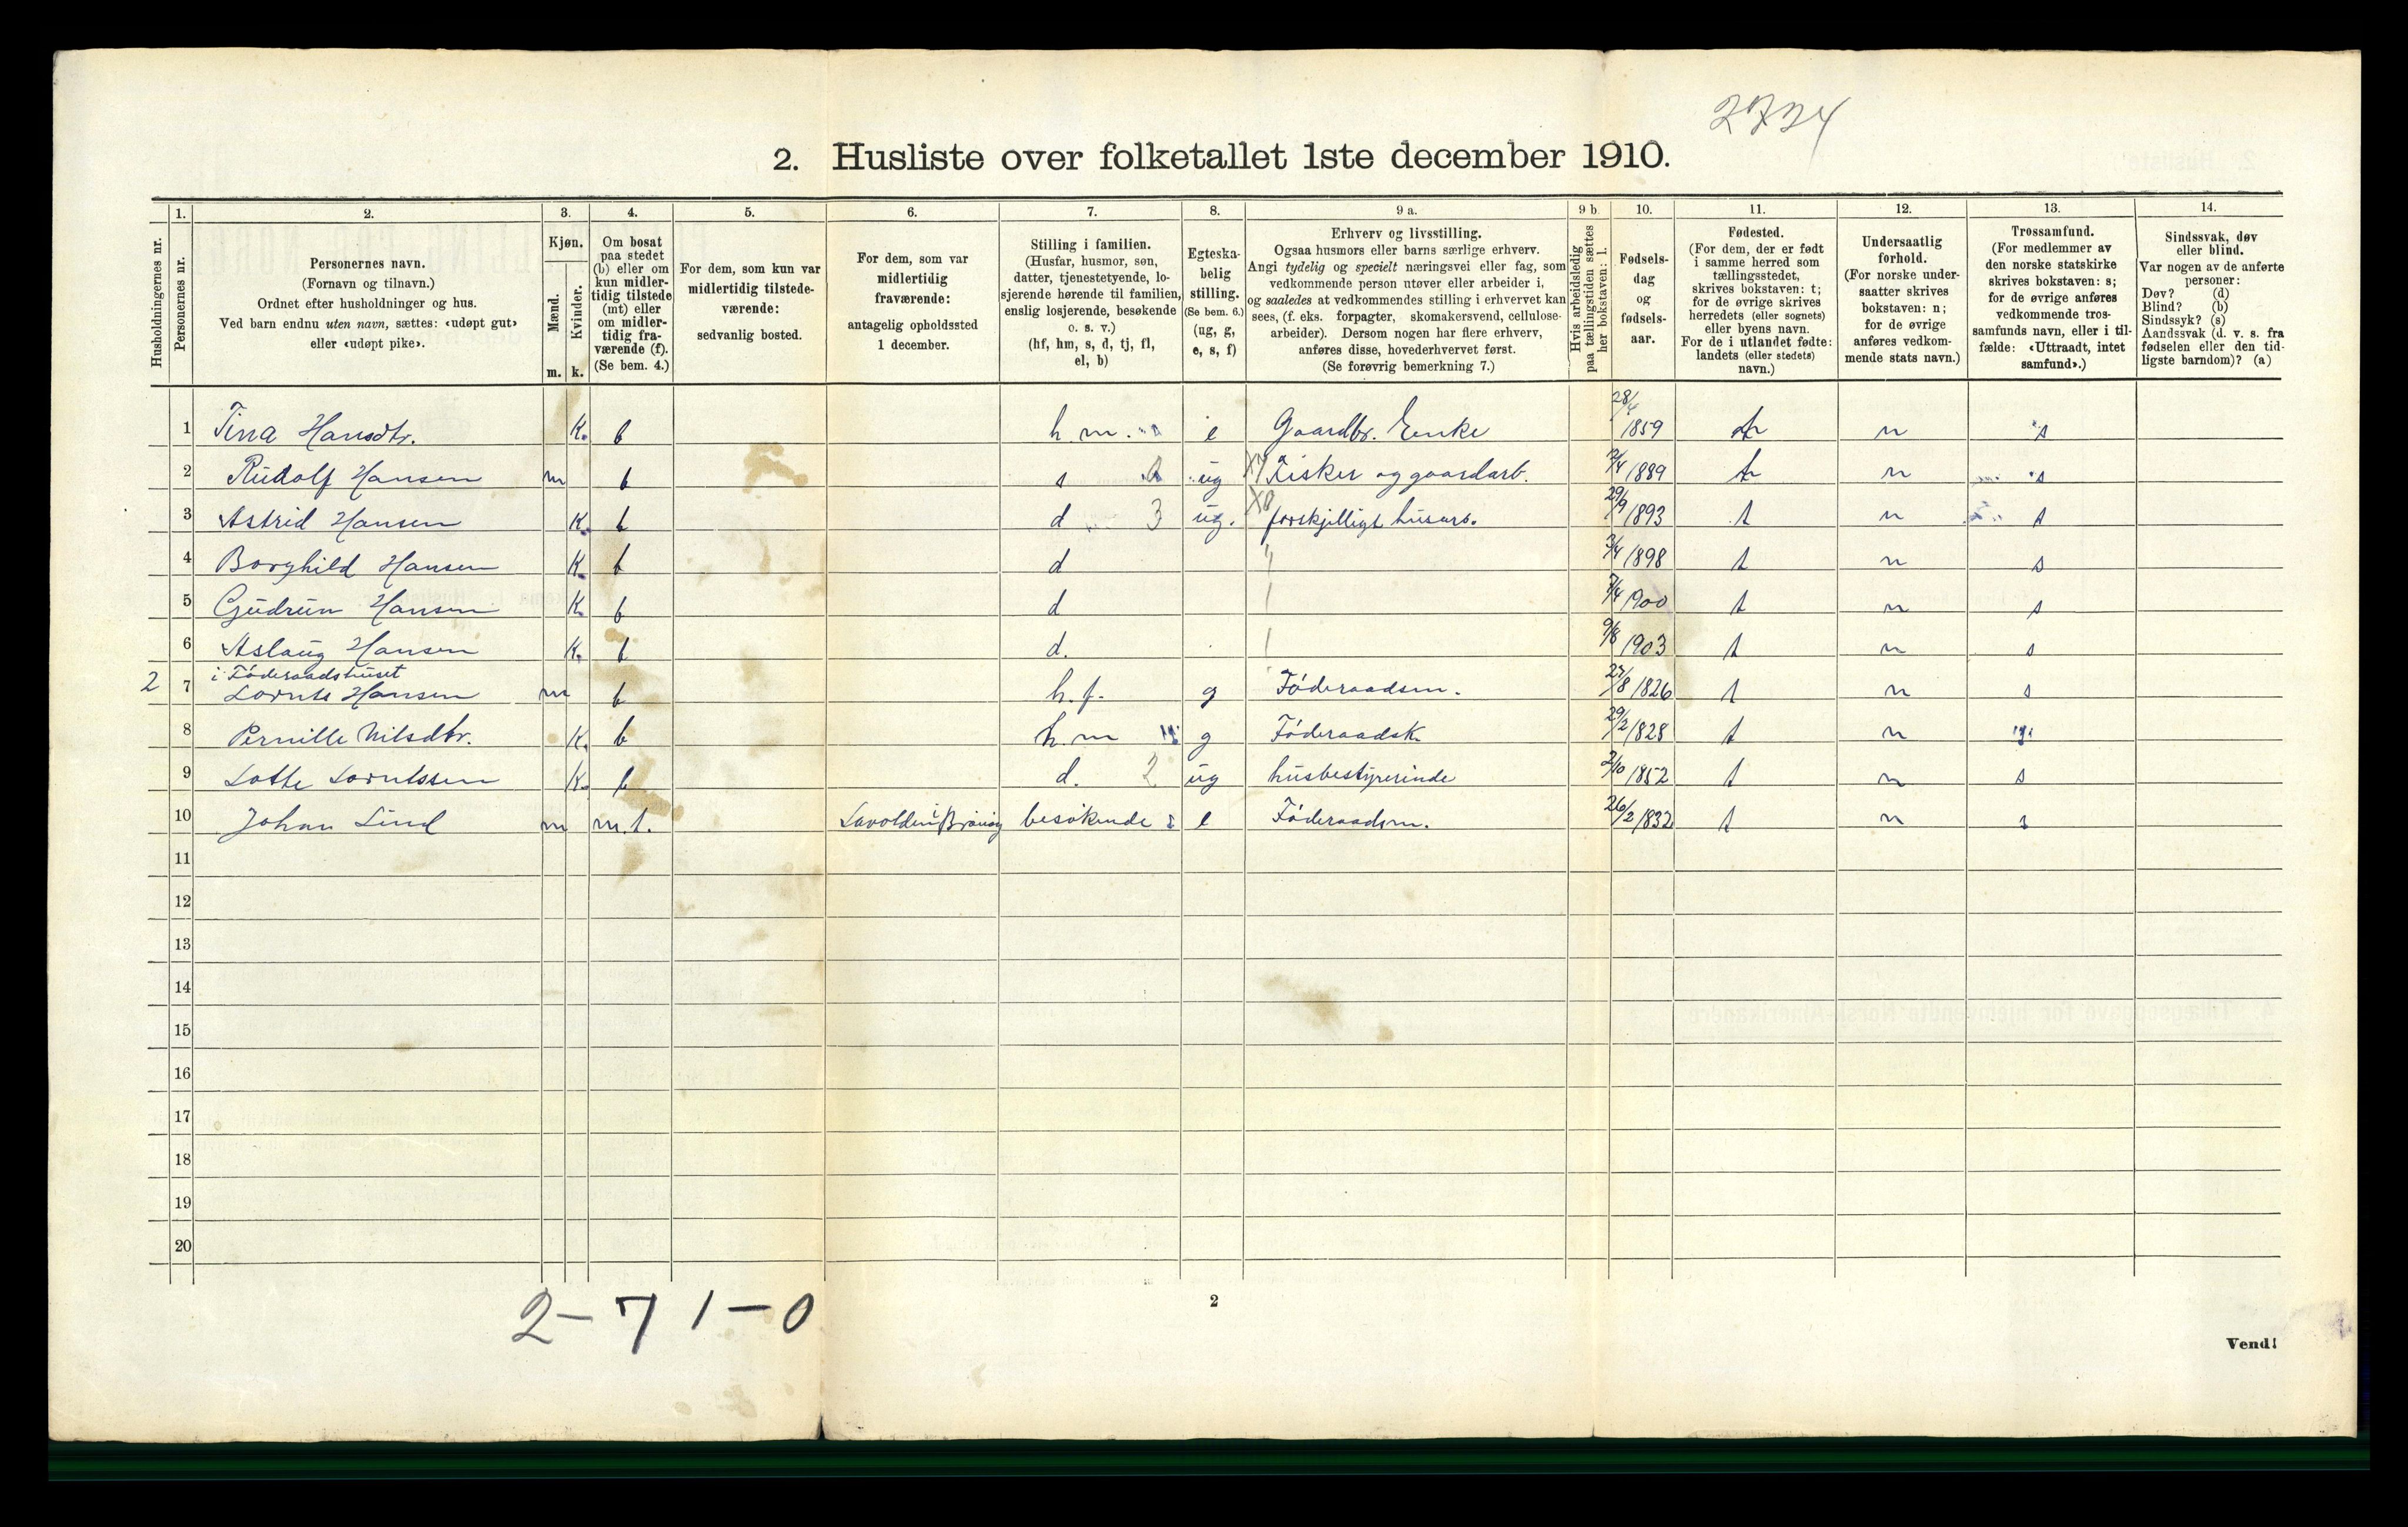 2724
2. Husliste over folketallet 1ste december 1910.
1. 2. 3. 4. 5. 6. 7. 8. 9 a. 9 b 10. 11. 12. 13. 14.
Husholdningernes nr.
Personernes nr.
Personernes navn.
(Fornavn og tilnavn.)
Ordnet efter husholdninger og hus.
Ved barn endnu uten navn, sættes: «udøpt gut»
eller «udøpt pike».
Kjøn.
Mænd.
Kvinder.
m. k.
Om bosat
paa stedet
(b) eller om
kun midler-
tidig tilstede
(mt) eller
om midler-
tidig fra-
værende (f).
(Se bem. 4.)
For dem, som kun var
midlertidig tilstede-
værende:
sedvanlig bosted.
For dem, som var
midlertidig
fraværende:
antagelig opholdssted
1 december.
Stilling i familien.
(Husfar, husmor, søn,
datter, tjenestetyende, lo-
sjerende hørende til familien,
enslig losjerende, besøkende
o. s. v.)
(hf, hm, s, d, tj, fl,
el, b)
Egteska-
belig
stilling.
(Se bem. 6.)
(ug, g,
e, s, f)
Erhverv og livsstilling.
Ogsaa husmors eller barns særlige erhverv.
Angi tydelig og specielt næringsvei eller fag, som
vedkommende person utøver eller arbeider i,
og saaledes at vedkommendes stilling i erhvervet kan
sees, (f. eks. forpagter, skomakersvend, cellulose-
arbeider). Dersom nogen har flere erhverv,
anføres disse, hovederhvervet først.
(Se forøvrig bemerkning 7.)
Hvis arbeidsledig
paa tællingstiden sættes
her bokstaven: l.
Fødsels-
dag
og
fødsels-
aar.
Fødested.
(For dem, der er født
i samme herred som
tællingsstedet,
skrives bokstaven: t;
for de øvrige skrives
herredets (eller sognets)
eller byens navn.
For de i utlandet fødte:
landets (eller stedets)
navn.)
Undersaatlig
forhold.
(For norske under-
saatter skrives
bokstaven: n;
for de øvrige
anføres vedkom-
mende stats navn.)
Trossamfund.
(For medlemmer av
den norske statskirke
skrives bokstaven: s;
for de øvrige anføres
vedkommende tros-
samfunds navn, eller i til-
fælde: «Uttraadt, intet
samfund».)
Sindssvak, døv
eller blind.
Var nogen av de anførte
personer:
Døv? (d)
Blind? (b)
Sindssyk? (s)
Aandssvak (d. v. s. fra
fødselen eller den tid-
ligste barndom)? (a)
1 Tina Hansdtr. K. b h.m. e Gaardbr. Enke 28/4 1859 t n s
2 Rudolf Hansen m b s ug Fisker og gaardarb. 2/4 1889 t n s
3 Astrid Hansen K. b d 3 ug. forskjelligt husarb. 29/9 1893 t n s
4 Borghild Hansen K. b d " 3/4 1898 t n s
5 Gudrun Hansen K. b d 7/4 1900 t n s
6 Aslaug Hansen K. b d. 9/8 1903 t n s
i Føderaadshuset
2 7 Lornts Hansen m b h.f. g Føderaadsm. 27/8 1826 t n s
8 Pernille Nilsdtr. K. b h.m g Føderaadsk. 29/2 1828 t n
9 Lotte Lorntssen K. b d. 2 ug husbestyrerinde 2/10 1852 t n s
10 Johan Lind m m.t. besøkende e Føderaadsm. 26/2 1832 t n s
11
12
13
14
15
16
17
18
19
20
2-7 1-0
2
Vend!